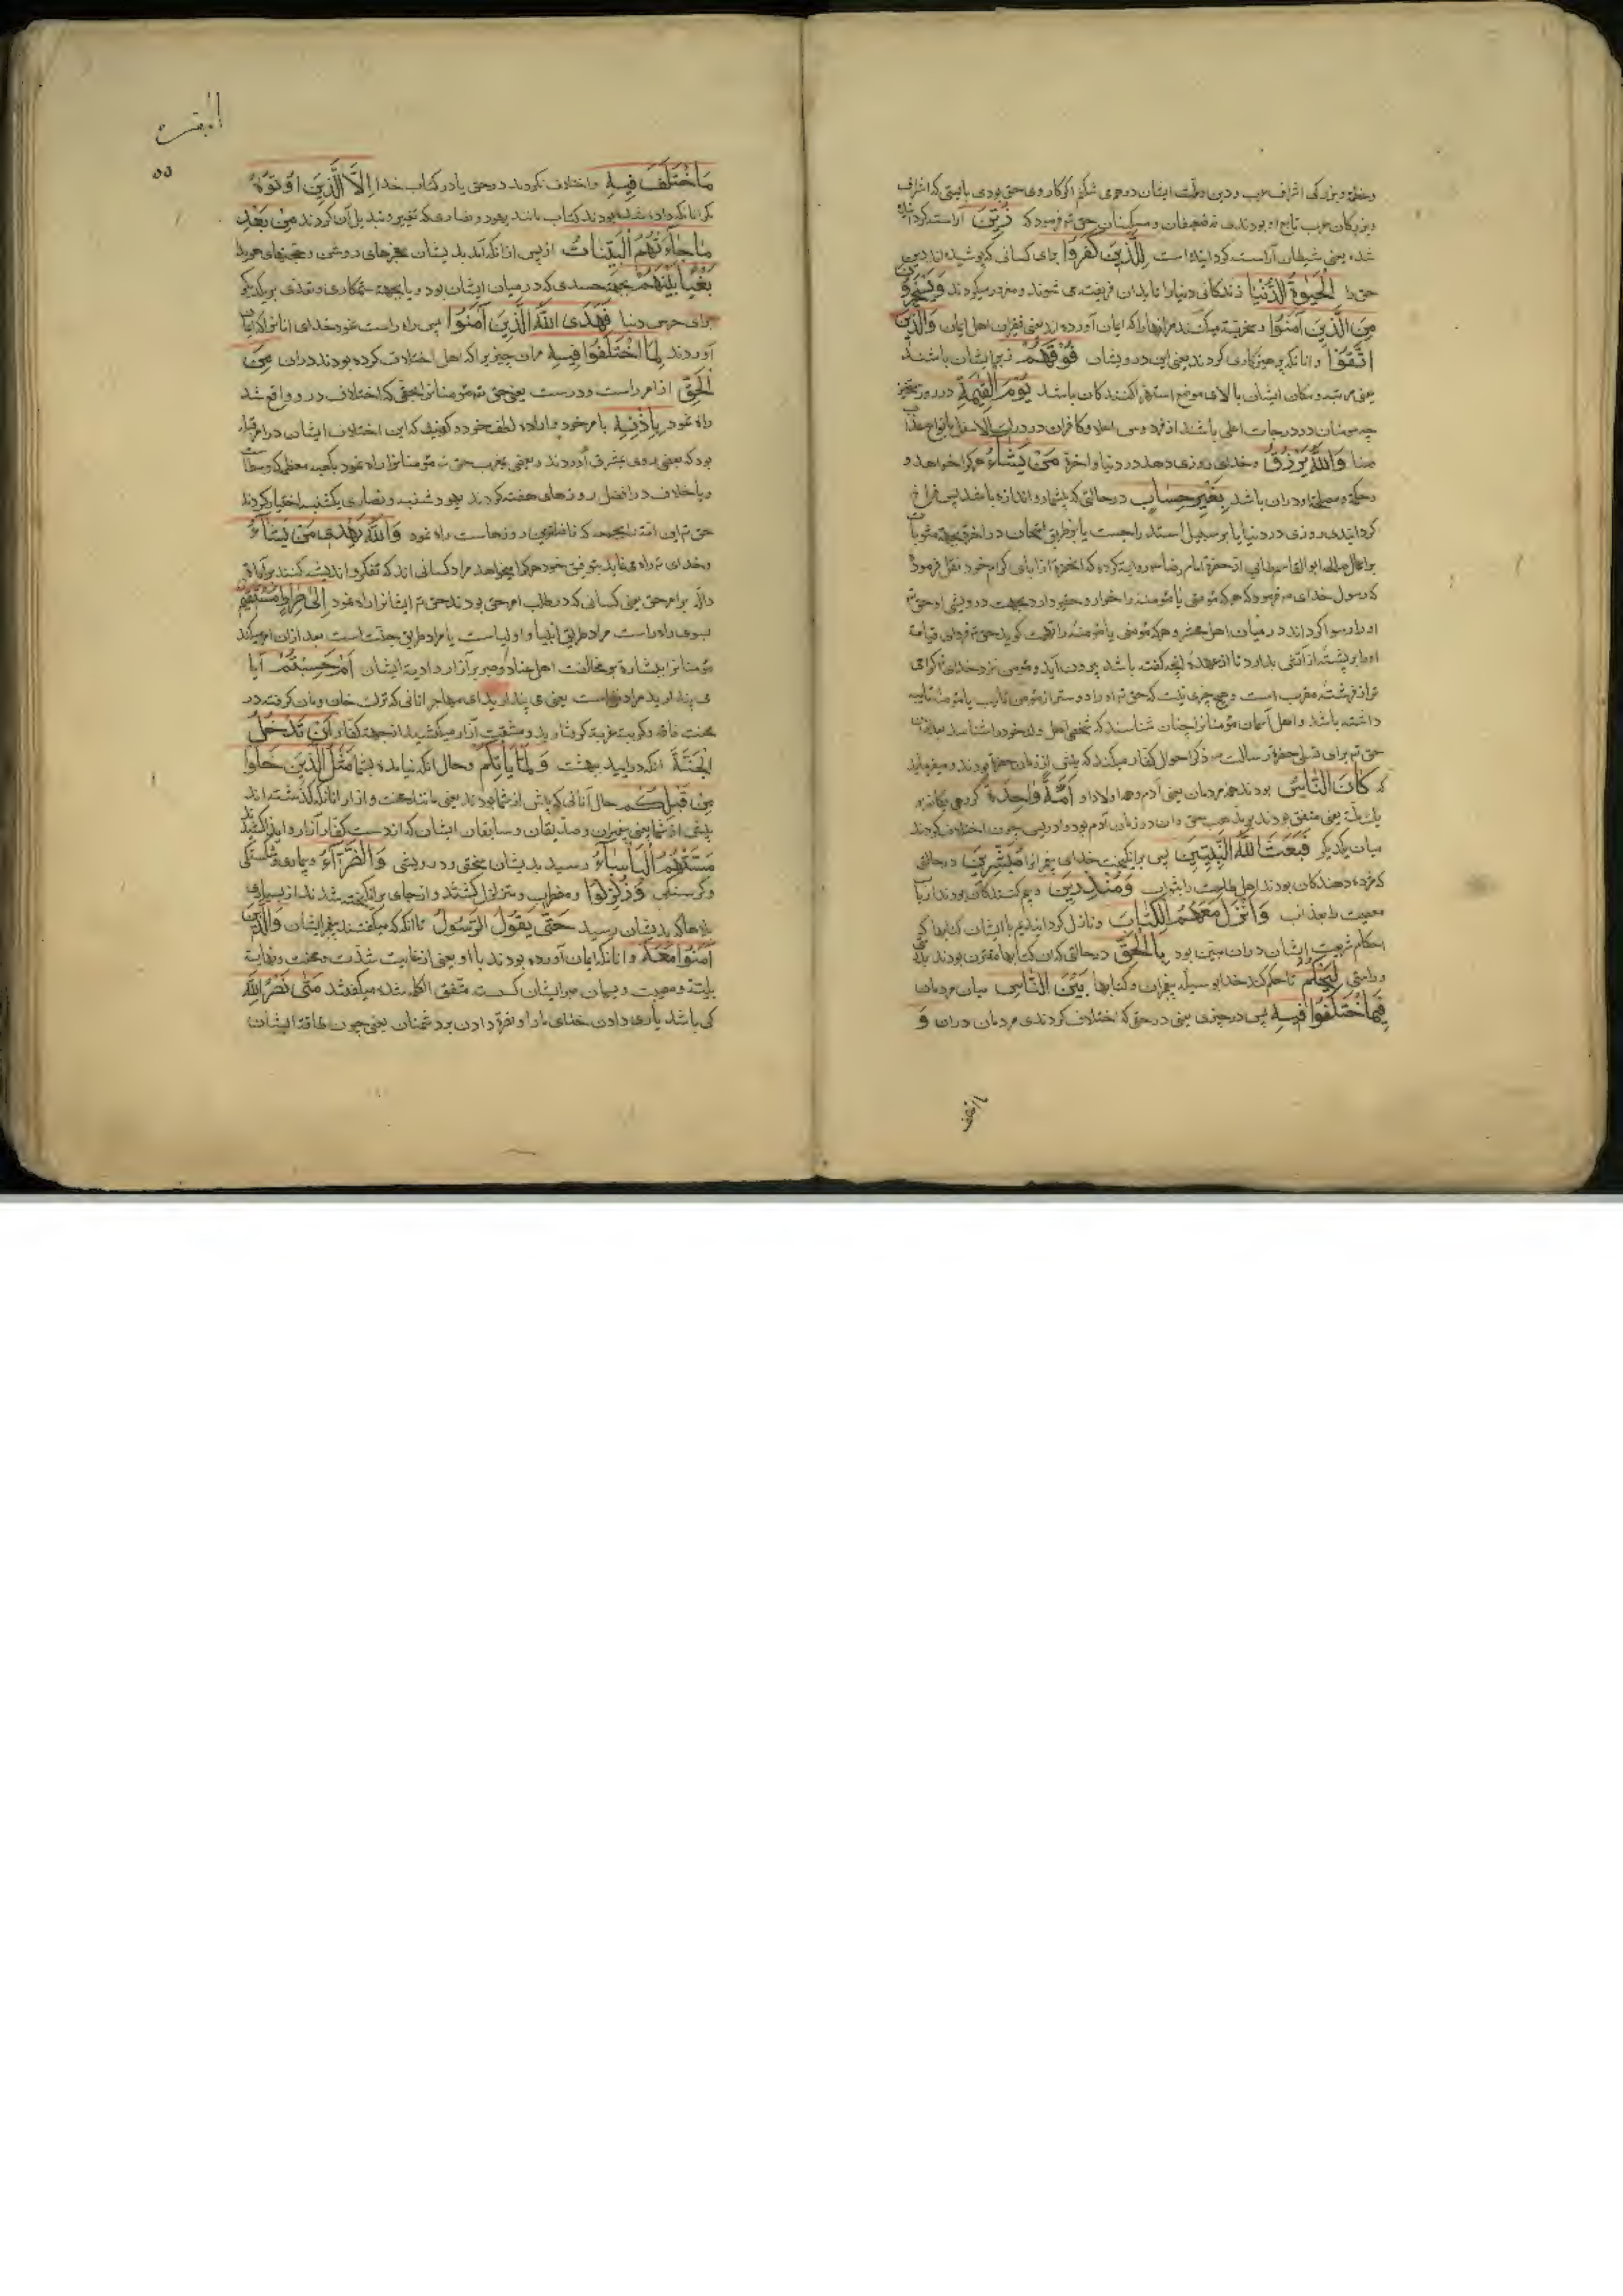 و بزرگان عرب تابع او بودندی نه ضعیفان و مسکینان حق تم فرمود که زُيِّنَ آراسته کرده
شده یعنی شیطان آراسته کردانیده است لِلَّذِينَ كَفَرُوا برای کسانی که پوشیده اند دین
حق را الْحَيٰوةُ الدُّنْيَا زندکانی دنیا را تا بدان فریفته می شوند و مغرور میکردند وَيَسْخَرُونَ
مِنَ الَّذِينَ آمَنُوا و سخریه میکنند مر انها را که ایمان آورده اند یعنی فقیران اهل ایمان وَالَّذِينَ
اتَّقَوْا و انانکه پرهیزکاری کردند یعنی این درویشان فَوْقَهُمْ زبر ایشان باشند
یعنی مرتبه و مکان ایشان بالای موضع استهزا کنندکان باشد يَوْمَ الْقِيٰمَةِ در روز
چه مومنان در درجات اعلی باشند از فردوس اعلا و کافران در درکات الاسفل بانواع عذاب
وَاللّٰهُ يَرْزُقُ و خدای روزی دهد در دنیا و اخرة مَنْ يَشَاءُ هر کرا خواهد و
حکمة و مصلحة در ان باشد بِغَيْرِ حِسَابٍ در حالتی که بیشمار و اندازه باشد پس فراخ
کردانیدن روزی در دنیا یا بر سبیل استدراجست یا بر طریق امتحان در اخرة بجهة
کرامت خود نقل فرمود
که رسول خدای فرمود که هر که مؤمنی یا مؤمنه را خوار و حقیر دارد بجهت درویشی او حق تم
او را رسوا کرداند در میان اهل محشر و هر که مؤمنی یا مؤمنه را تهمت کوید حق تم فردای قیامة
او را بر پشته از آتش بدارد تا از عهده انچه کفته باشد بیرون آید و مؤمن نزد خدای کرامی
تر از فرشته مقرب است و هیچ چیزی نیست که حق تم او را دوستر از مؤمن تایب یا مؤمنه تایبه
داشته باشد و اهل آسمان مؤمنانرا چنان شناسند که شخصی اهل و ولد خود را شناسد
حق تم برای تسلی حضرة رسالت ذکر احوال کفار میکند که پیش از زمان حضرة بودند و میفرماید
که كَانَ النَّاسُ بودند همه مردمان یعنی آدم و همه اولاد او أُمَّةً وَاحِدَةً کروهی یکانه بر
یک ملة یعنی متفق بودند بر مذهب حق و ان در زمان آدم بود و ادریس چون اختلاف کردند
میان یکدیکر فَبَعَثَ اللّٰهُ النَّبِيِّينَ پس برانکیخت خدای پیغمبرانرا مُبَشِّرِينَ در حالتی
که مژده دهندکان بودند اهل طاعت را بثواب وَمُنْذِرِينَ و بیم کنندکان بودند ارباب
معصیت را بعذاب وَأَنْزَلَ مَعَهُمُ الْكِتَابَ و نازل کردانیدیم با ایشان کتابها که
احکام شریعت ایشان در ان مبین بود بِالْحَقِّ در حالتی که ان کتابها مقترن بودند
و راستی لِيَحْكُمَ تا حکم کند خدا بوسیله پیغمبران و کتابها بَيْنَ النَّاسِ میان مردمان
فِيمَا اخْتَلَفُوا فِيهِ پس در چیزی یعنی در حقی که اختلاف کردندی مردمان در ان وَ
البقره
٥٥
مَا اخْتَلَفَ فِيهِ و اختلاف نکردند در حق یا در کتاب خدا إِلَّا الَّذِينَ أُوتُوهُ
مکر انانکه داده شده بودند کتاب مانند یهود و نصاری که تغییر و تبدیل آن کردند مِنْ بَعْدِ
مَا جَاءَتْهُمُ الْبَيِّنَاتُ از پس از انکه آمد بدیشان معجزهای روشن و حجتهای هویدا
بَغْيًا بَيْنَهُمْ بجهة حسدی که در میان ایشان بود و یا بجهة ستمکاری و تعدی بر یکدیکر
برای حرص دنیا فَهَدَى اللّٰهُ الَّذِينَ آمَنُوا پس راه راست نمود خدای انانرا که ایمان
آوردند لِمَا اخْتَلَفُوا فِيهِ مران چیز را که اهل اختلاف کرده بودند در ان مِنَ
الْحَقِّ از امر راست و درست یعنی حق تم مؤمنانرا بحقی که اختلاف در و واقع شد
راه نمود بِإِذْنِهِ بامر خود و باراده و لطف خود و کویند که این اختلاف ایشان در امر قبله
بود که بعضی روی بمشرق آوردند و بعضی بمغرب حق تم مؤمنانرا راه نمود بکعبه معظمه
و یا خلاف در افضل روزهای هفته کردند یهود شنبه و نصاری یکشنبه اختیار کردند
حق تم این امة را بجمعه که فاضلترین روزهاست راه نمود وَاللّٰهُ يَهْدِي مَنْ يَشَاءُ
و خدای تم راه می نماید بتوفیق خود هر کرا میخواهد مراد کسانی اند که تفکر و اندیشه کنند بر آیات
داله بر امر حق یعنی کسانی که در طلب امر حق بودند حق تم ایشانرا راه نمود إِلَى صِرَاطٍ مُسْتَقِيمٍ
بسوی راه راست مراد طریق انبیا و اولیاست یا مراد طریق جنت است بعد از ان امر میکند
مؤمنانرا بر مخالفت اهل عناد و صبر بر آزار و اذیة ایشان أَمْ حَسِبْتُمْ آیا
می پندارید مراد یعنی می پندارید ای مهاجرانی که ترک خان و مان کرفته در
محنت فاقه و کربت غربة کرفتارید و مشقت آزار میکشید از جهة کفار أَنْ تَدْخُلُوا
الْجَنَّةَ انکه در ایید ببهشت وَلَمَّا يَأْتِكُمْ و حال انکه نیامده بشما مَثَلُ الَّذِينَ خَلَوْا
مِنْ قَبْلِكُمْ حال آنانی که پیش از شما بودند یعنی مانند محنت و ازار انانکه کذشته اند
پیش از شما یعنی پیغمبران و صدیقان و سابقان ایشان که از دست کفار آزار و ایذا کشیدند
مَسَّتْهُمُ الْبَأْسَاءُ رسید بدیشان سختی و درویشی وَالضَّرَّاءُ و بیماری و شکستکی
و کرسنکی وَزُلْزِلُوا و مضطرب و متزلزل کشتند و از جای برانکیخته شدند از بسیاری
بلاها که بدیشان رسید حَتَّى يَقُولَ الرَّسُولُ تا انکه که میکفتند پیغمبر ایشان وَالَّذِينَ
آمَنُوا مَعَهُ و انانکه ایمان آورده بودند با او یعنی از غایت شدت و محنت و نهایة
بلیة و مصیبت و پیمان صبر ایشان کسسته متفق الکلمه شده میکفتند مَتٰى نَصْرُ اللّٰهِ
کی باشد یاری دادن خدای ما را و نصرة دادن بر دشمنان یعنی چون طاقة ایشان